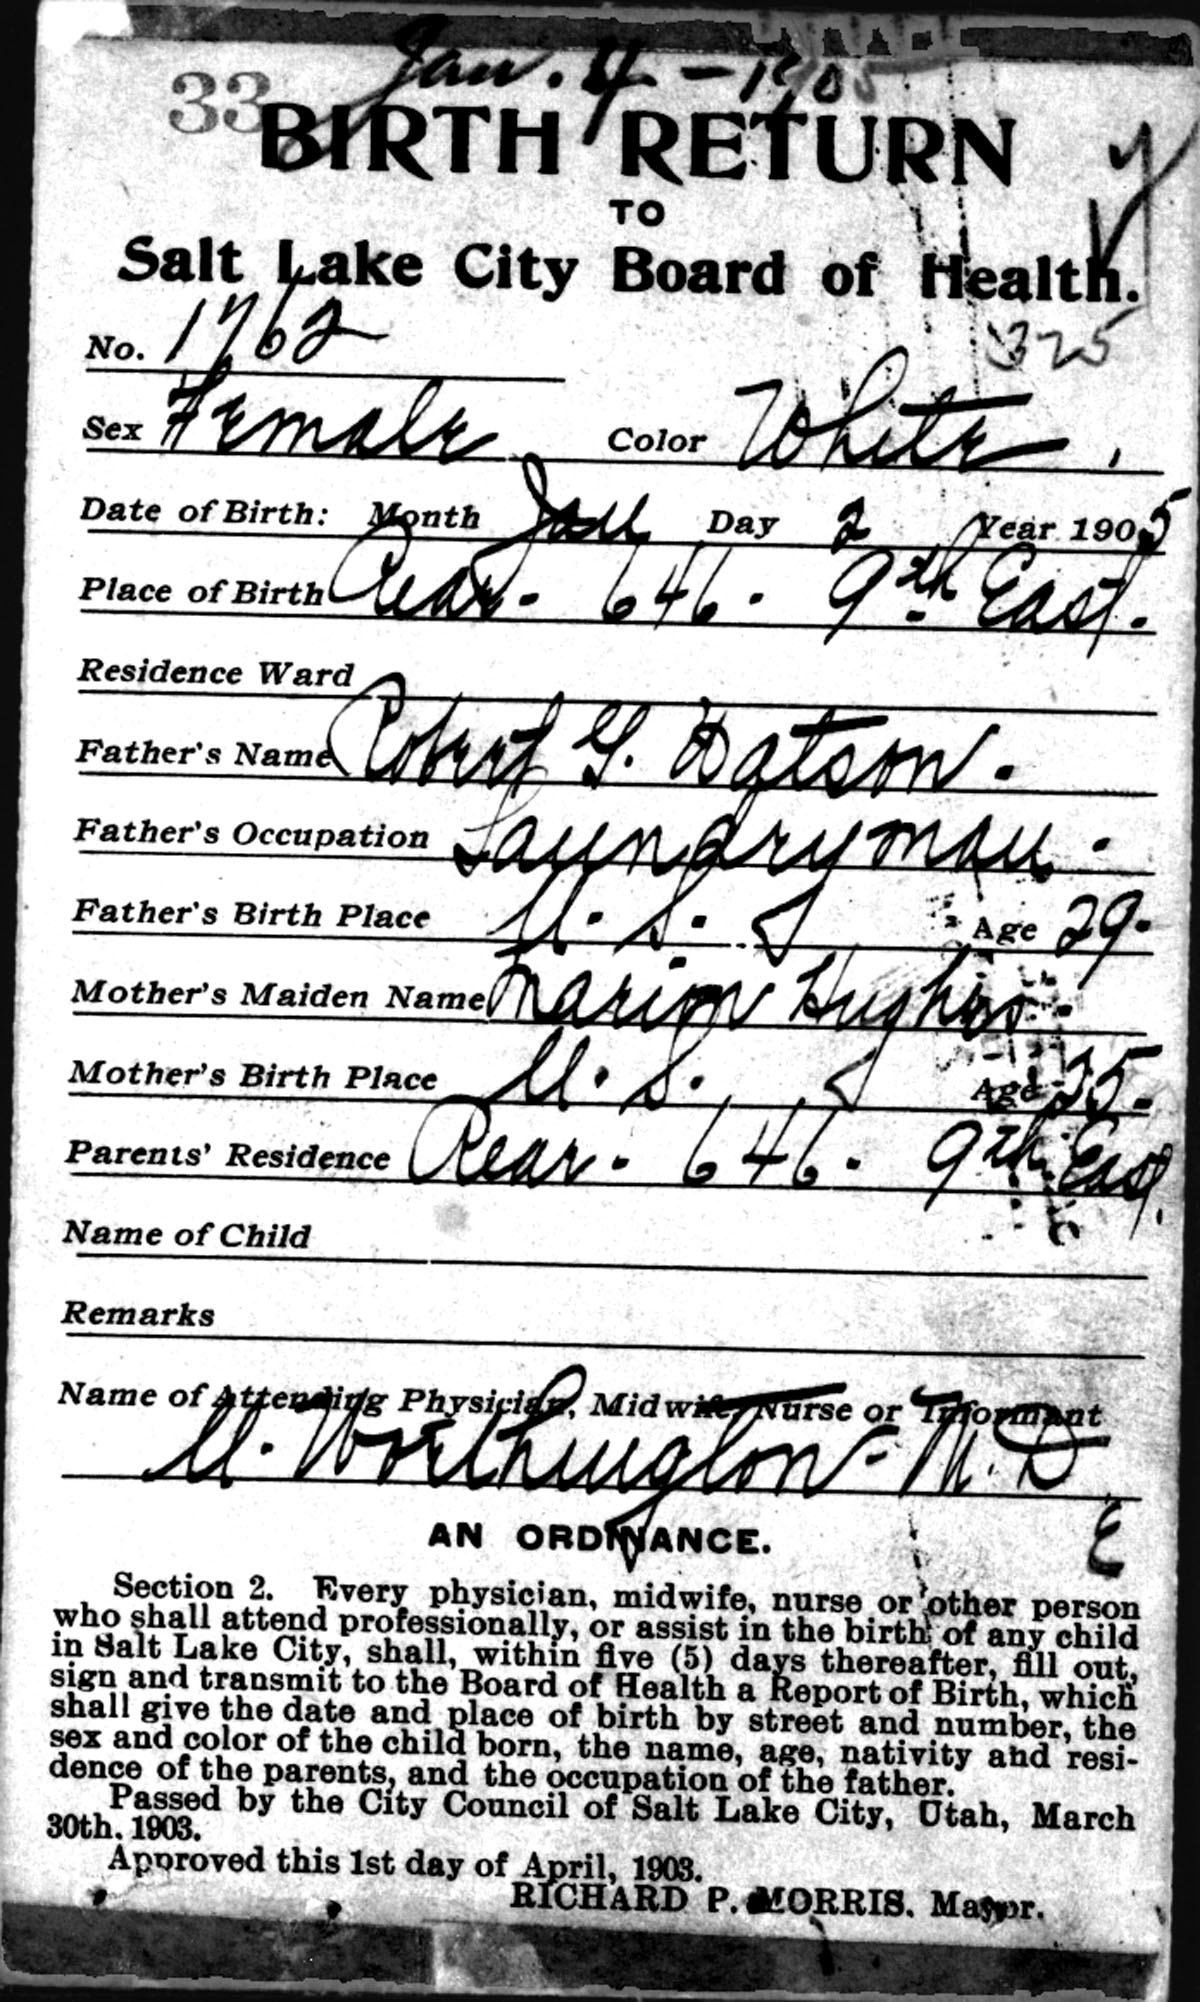 Jan. 4 - 1905
33
BIRTH RETURN
TO
Salt Lake City Board of Health.
No. 1762
325
Sex Female Color White
Date of Birth: Month Jan Day 2 Year 1905
Place of Birth Rear - 646 - 9th East.
Residence Ward
Father's Name Robert G. Watson.
Father's Occupation Laundryman.
Father's Birth Place U. S. Age 29.
Mother's Maiden Name Marion Hughes
Mother's Birth Place U. S. Age 35.
Parents' Residence Rear - 646 - 9th East.
Name of Child
Remarks
Name of Attending Physician, Midwife, Nurse or Informant
U. Worthington - M.D
AN ORDINANCE.
Section 2. Every physician, midwife, nurse or other person
who shall attend professionally, or assist in the birth of any child
in Salt Lake City, shall, within five (5) days thereafter, fill out,
sign and transmit to the Board of Health a Report of Birth, which
shall give the date and place of birth by street and number, the
sex and color of the child born, the name, age, nativity and resi-
dence of the parents, and the occupation of the father.
Passed by the City Council of Salt Lake City, Utah, March
30th, 1903.
Approved this 1st day of April, 1903.
RICHARD P. MORRIS. Mayor.